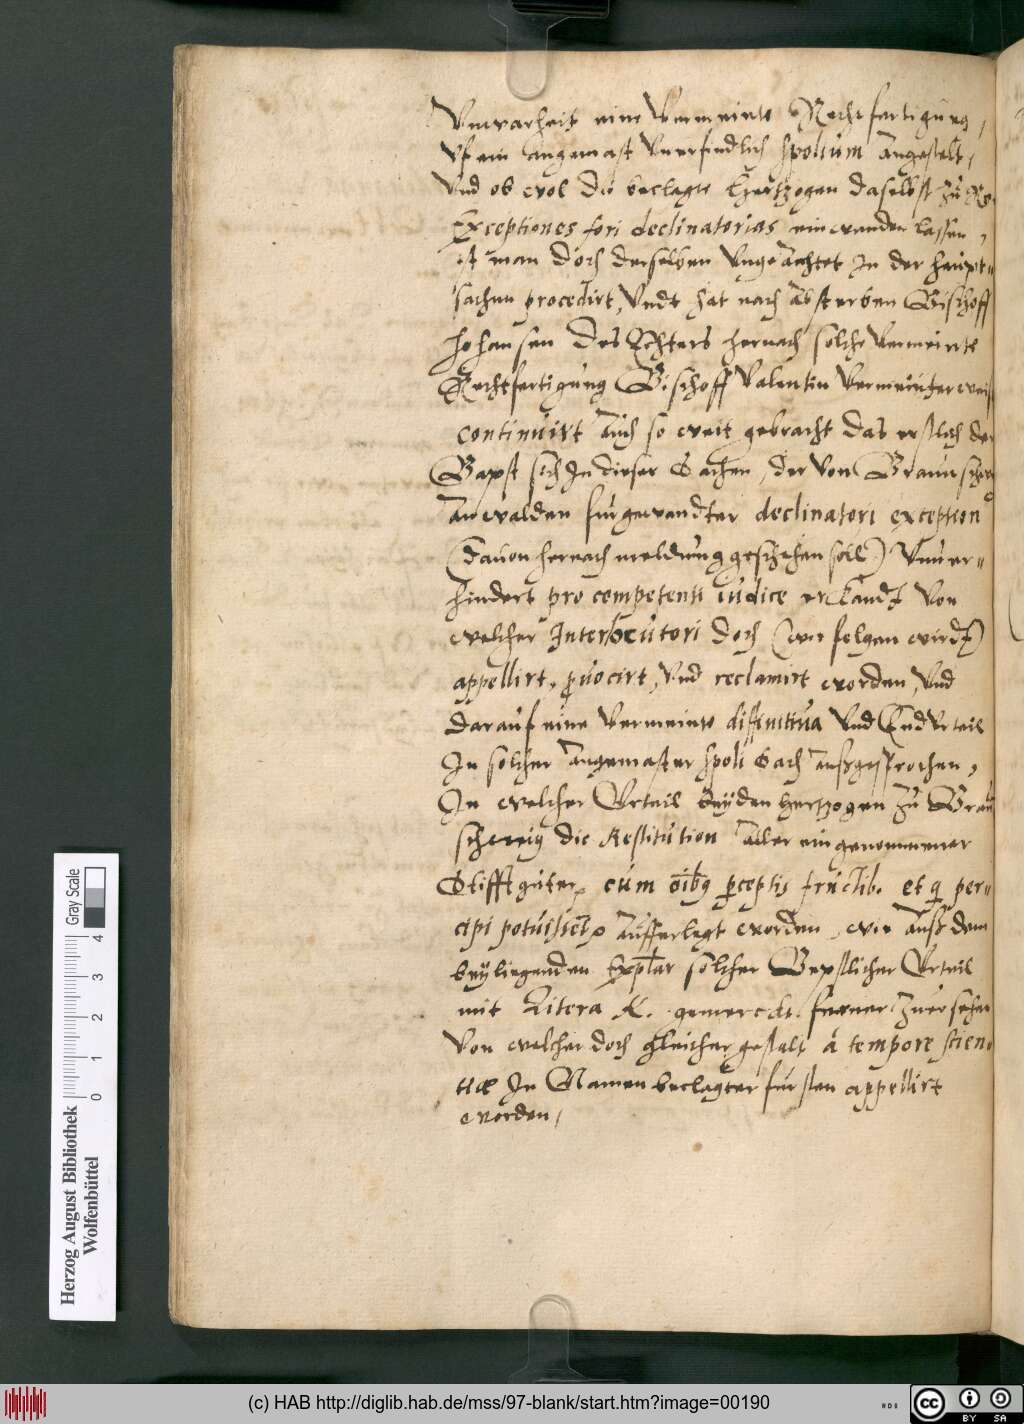 Unwarheit eine Vermeinte Rechtfertigung,
Vf ein angemast Unerfindlich spolium angestelt,
Und ob wol die beclagte Hertzogen daselbst zu Ro
Exceptiones fori declinatorias einwenden lassen,
ist man doch derselben Ungeachtet In der haupt-
sachen procedirt, Undt hat nach absterben Bischoff
Johansen des hernach solche Vermeinte
Rechtfertigung Bischoff Valentin Vermeinterweis
continuirt auch so weit gebracht das erstlich der
Bapst sich In dieser Sachen, der von Braunschw
anwalden furgewendter declinatori exception
(Dauon hernach meldung geschehen soll) Unuer-
hindert pro competenti iudice erkandt Von
welcher Interlocutori doch (wie folgen wirdt)
appellirt, prouocirt, Und reclamirt worden, Und
darauf eine Vermeinte diffinitiua Und End Urteil
In solcher angemaster spoli Sach außgesprochen,
In welcher Urteil beyden Hertzogen zu Braun
schweig die Restitution aller eingenommener
Stifftguter, cum oībq perceptis fructib. et q per-
cipi potuissēt aufferlegt worden, wie auß dem
beyliegenden Explar solcher Bepstlicher Urteil
mit Litera K. gemerckt ferner zuersehen
Von welcher doch gleicher gestalt à tempore scien-
tiæ In Namen beclagter fursten appellirt
worden,
Herzog August Bibliothek
Wolfenbüttel
0 1 2 3 4
Gray Scale
(c) HAB http://diglib.hab.de/mss/97-blank/start.htm?image=00190
cc BY SA